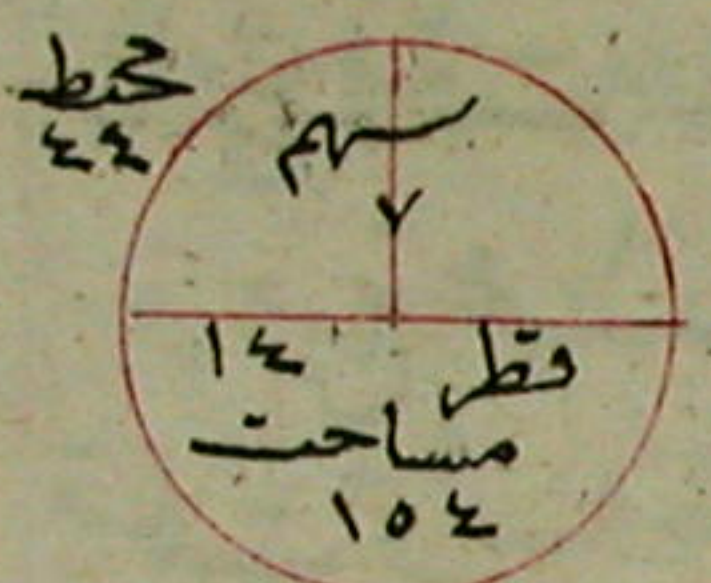 محيط
٤٤
سهم
٧
قطر
١٤
مساحت
١٥٤